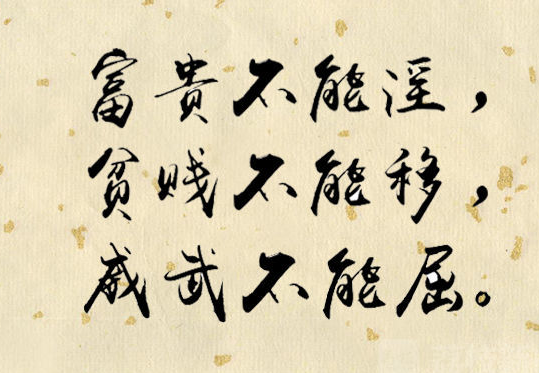 富贵不能淫，
贫贱不能移，
威武不能屈。